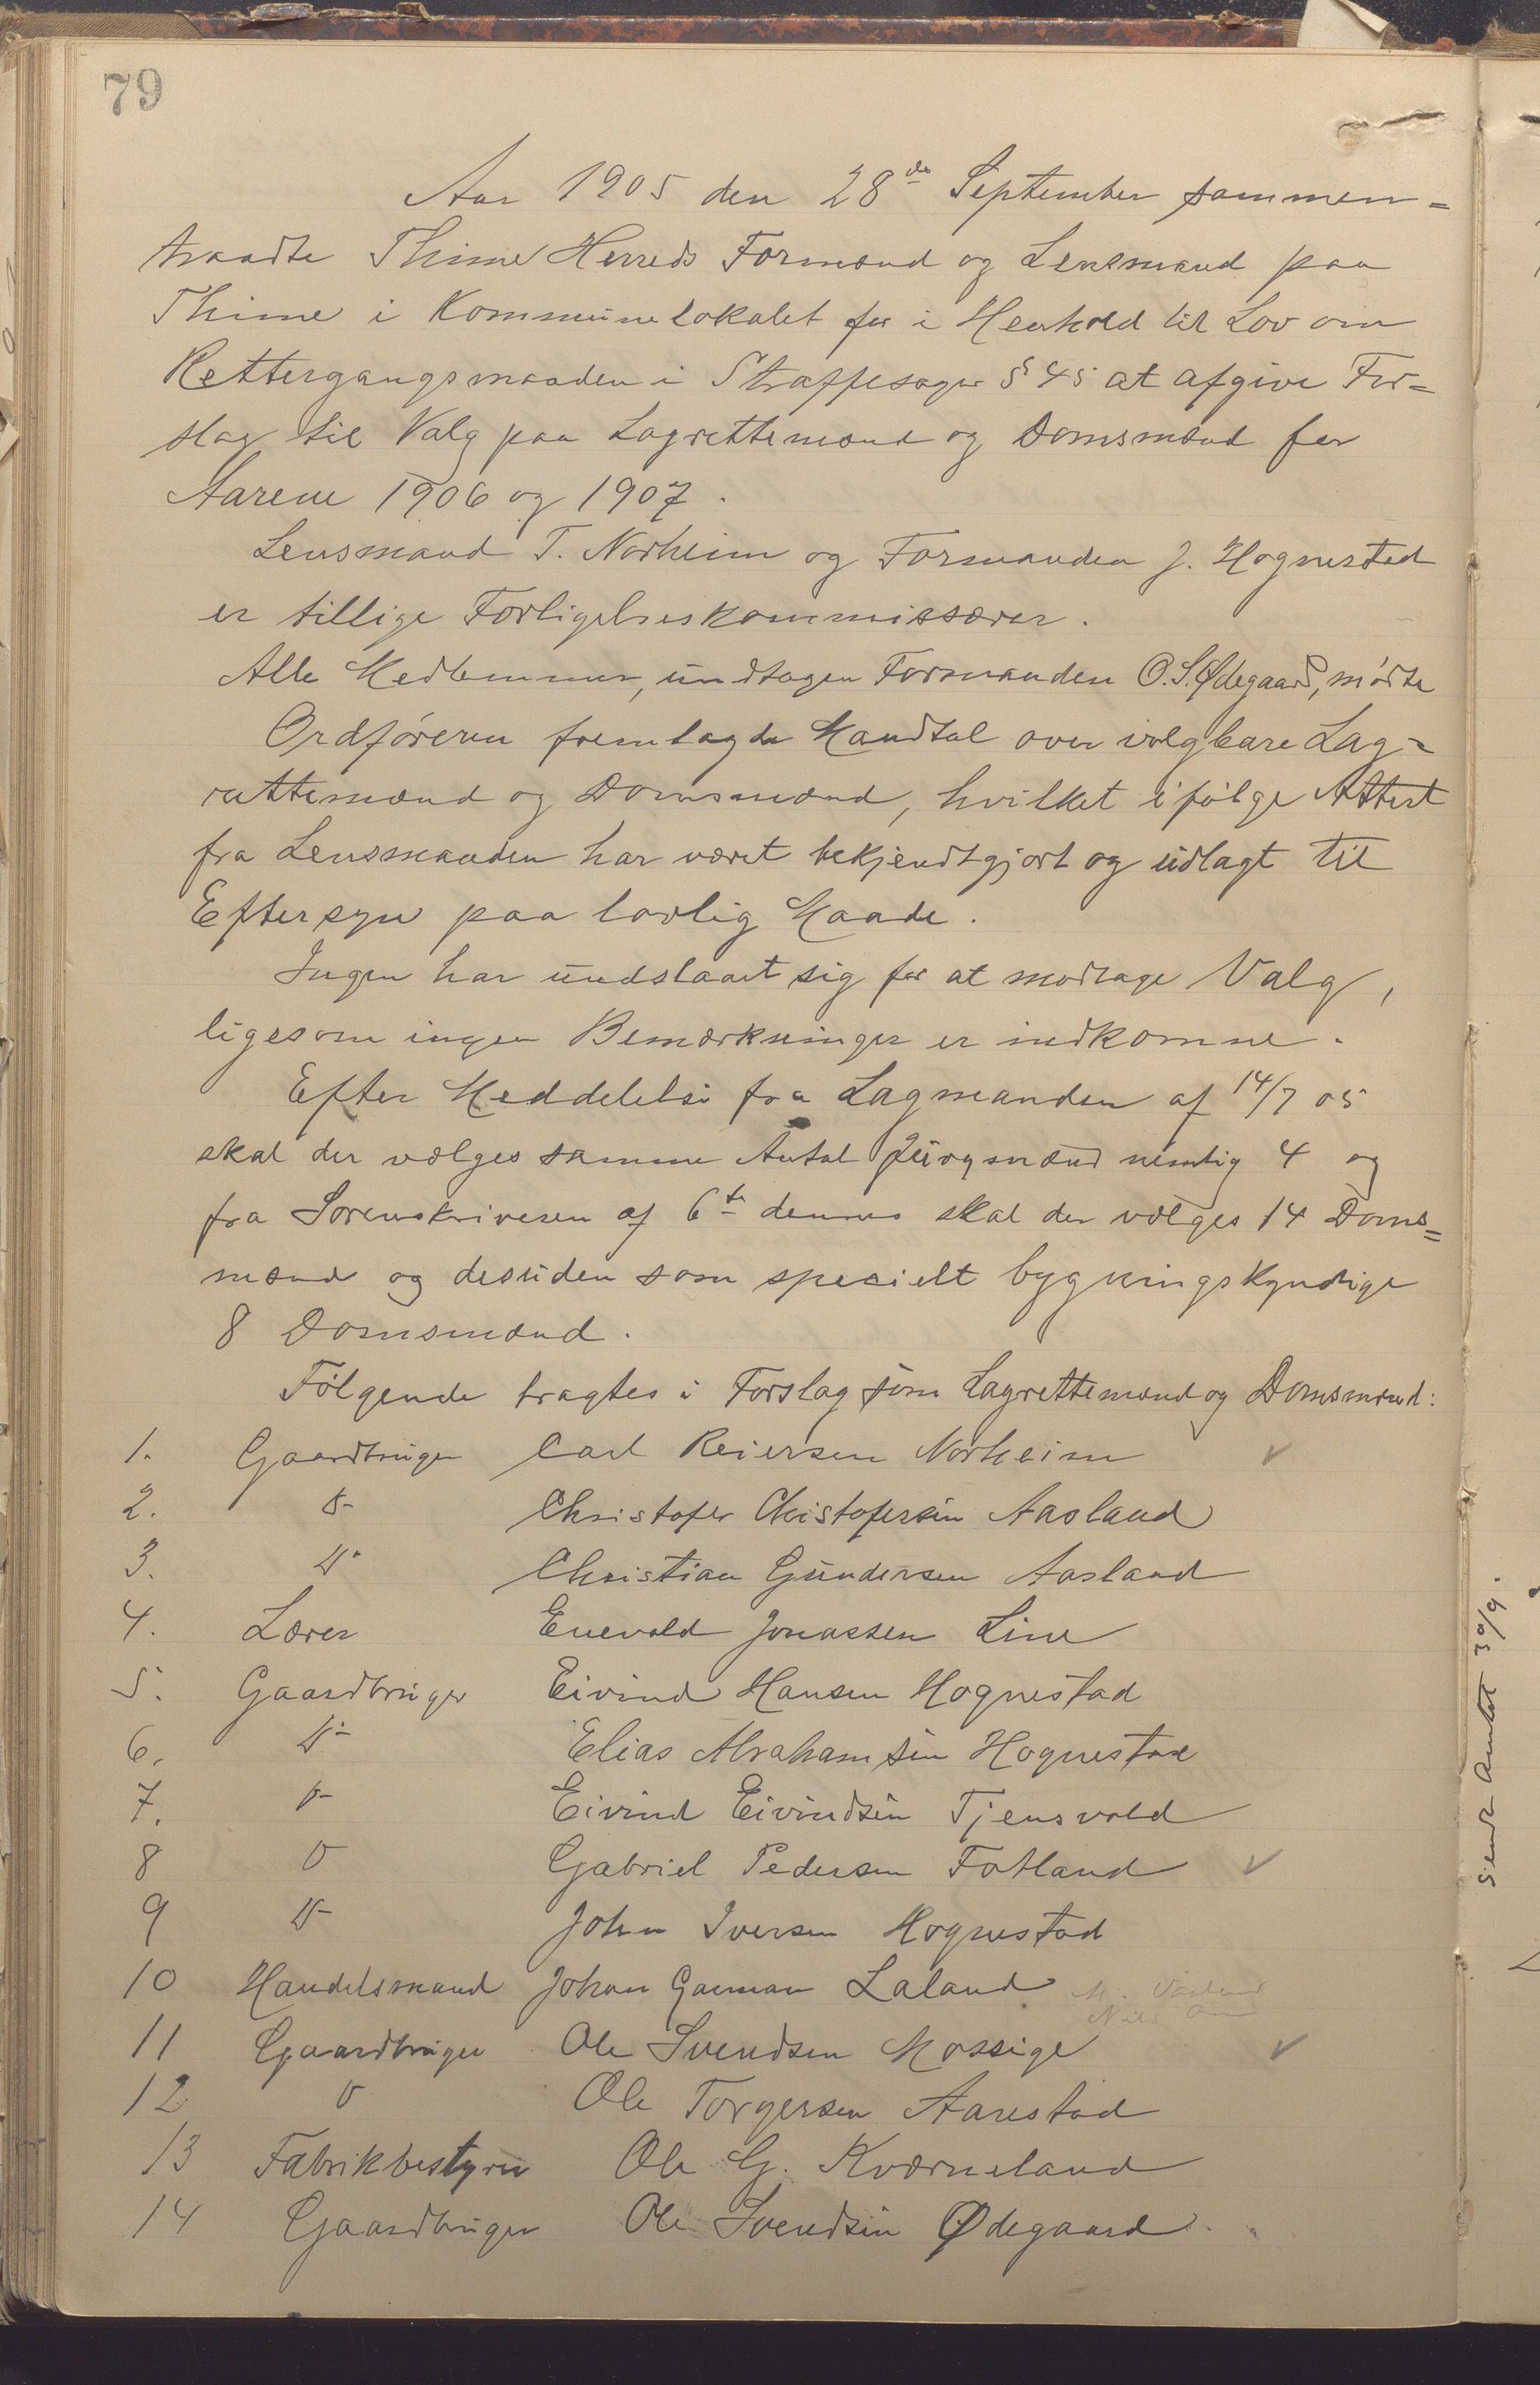 79
Aar 1905 den 28de September sammen=
traadte Thime Herreds Formænd og Lensmand paa
Thime i Kommunelokalet for i Henhold til Lov om
Rettergangsmaaden i Straffesager § 45 at afgive For=
slag til Valg paa Lagrettemænd og Domsmænd for
Aarene 1906 og 1907.
Lensmand T. Norheim og Formanden J. Hognestad
er tillige Forligelseskommissærer.
Alle Medlemmer, undtagen Formanden O.S. Ødegaard, mødte
Ordføreren fremlagde Mandtal over valgbare Lag=
rettemænd og Domsmænd, hvilket ifølge Attest
fra Lensmanden har været bekjendtgjort og udlagt til
Eftersyn paa lovlig Maade.
Ingen har undslaaet sig for at modtage Valg,
ligesom ingen Bemærkninger er indkomne.
Efter Meddelelse fra Lagmanden af 14/7 05
skal der vælges samme Antal Jurymænd nemlig 4 og
fra Sorenskriveren af 6te dennes skal der vælges 14 Doms=
mænd og desuden som specielt bygningskyndige
8 Domsmænd.
Følgende bragtes i Forslag som Lagrettemænd og Domsmænd:
1. Gaardbruger Carl Reiersen Norheim ✓
2. D- Christofer Christofersen Aasland
3. D- Christian Gundersen Aasland
4. Lærer Enevald Jonassen Line
5. Gaardbruger Eivind Hansen Hognestad
6. D- Elias Abrahamsen Hognestad
7. D- Eivind Eivindsen Tjensvold
8 D Gabriel Pedersen Fotland ✓
9 D- John Iversen Hognestad
10 Handelsmand Johan Garman Laland
11 Gaardbruger Ole Svendsen Mossige ✓
12 D Ole Torgersen Aarestad
13 Fabrikbestyrer Ole G. Kværneland
14 Gaardbruger Ole Svendsen Ødegaard.
Sendt Amtet 30/9.